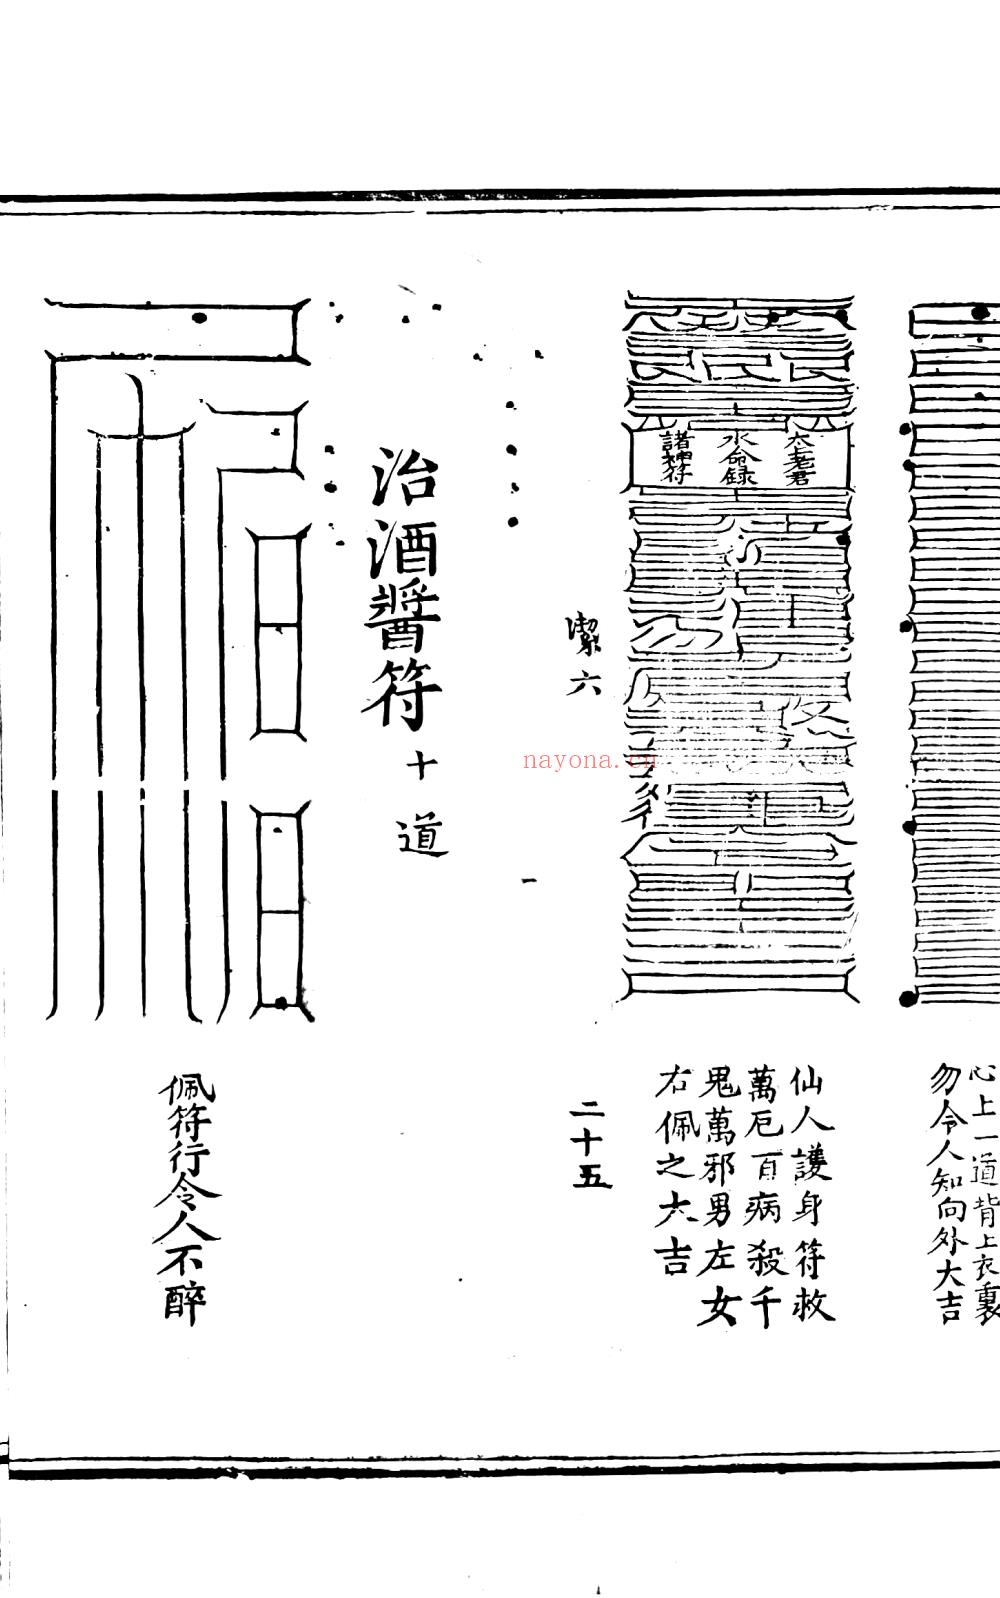 心上一道背上衣裏
勿令人知向外大吉
太上老君
水命録
諸神符
仙人護身符救
萬厄百病殺千
鬼萬邪男左女
右佩之大吉
潔六
二十五
治酒醬符十道
佩符行令人不醉
nayona.cn